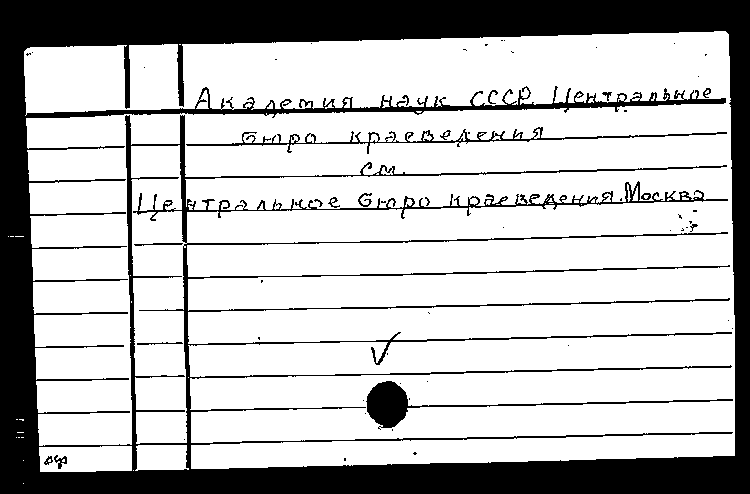 Академия наук СССР. Центральное
бюро краеведения
см.
Центральное бюро краеведения. Москва